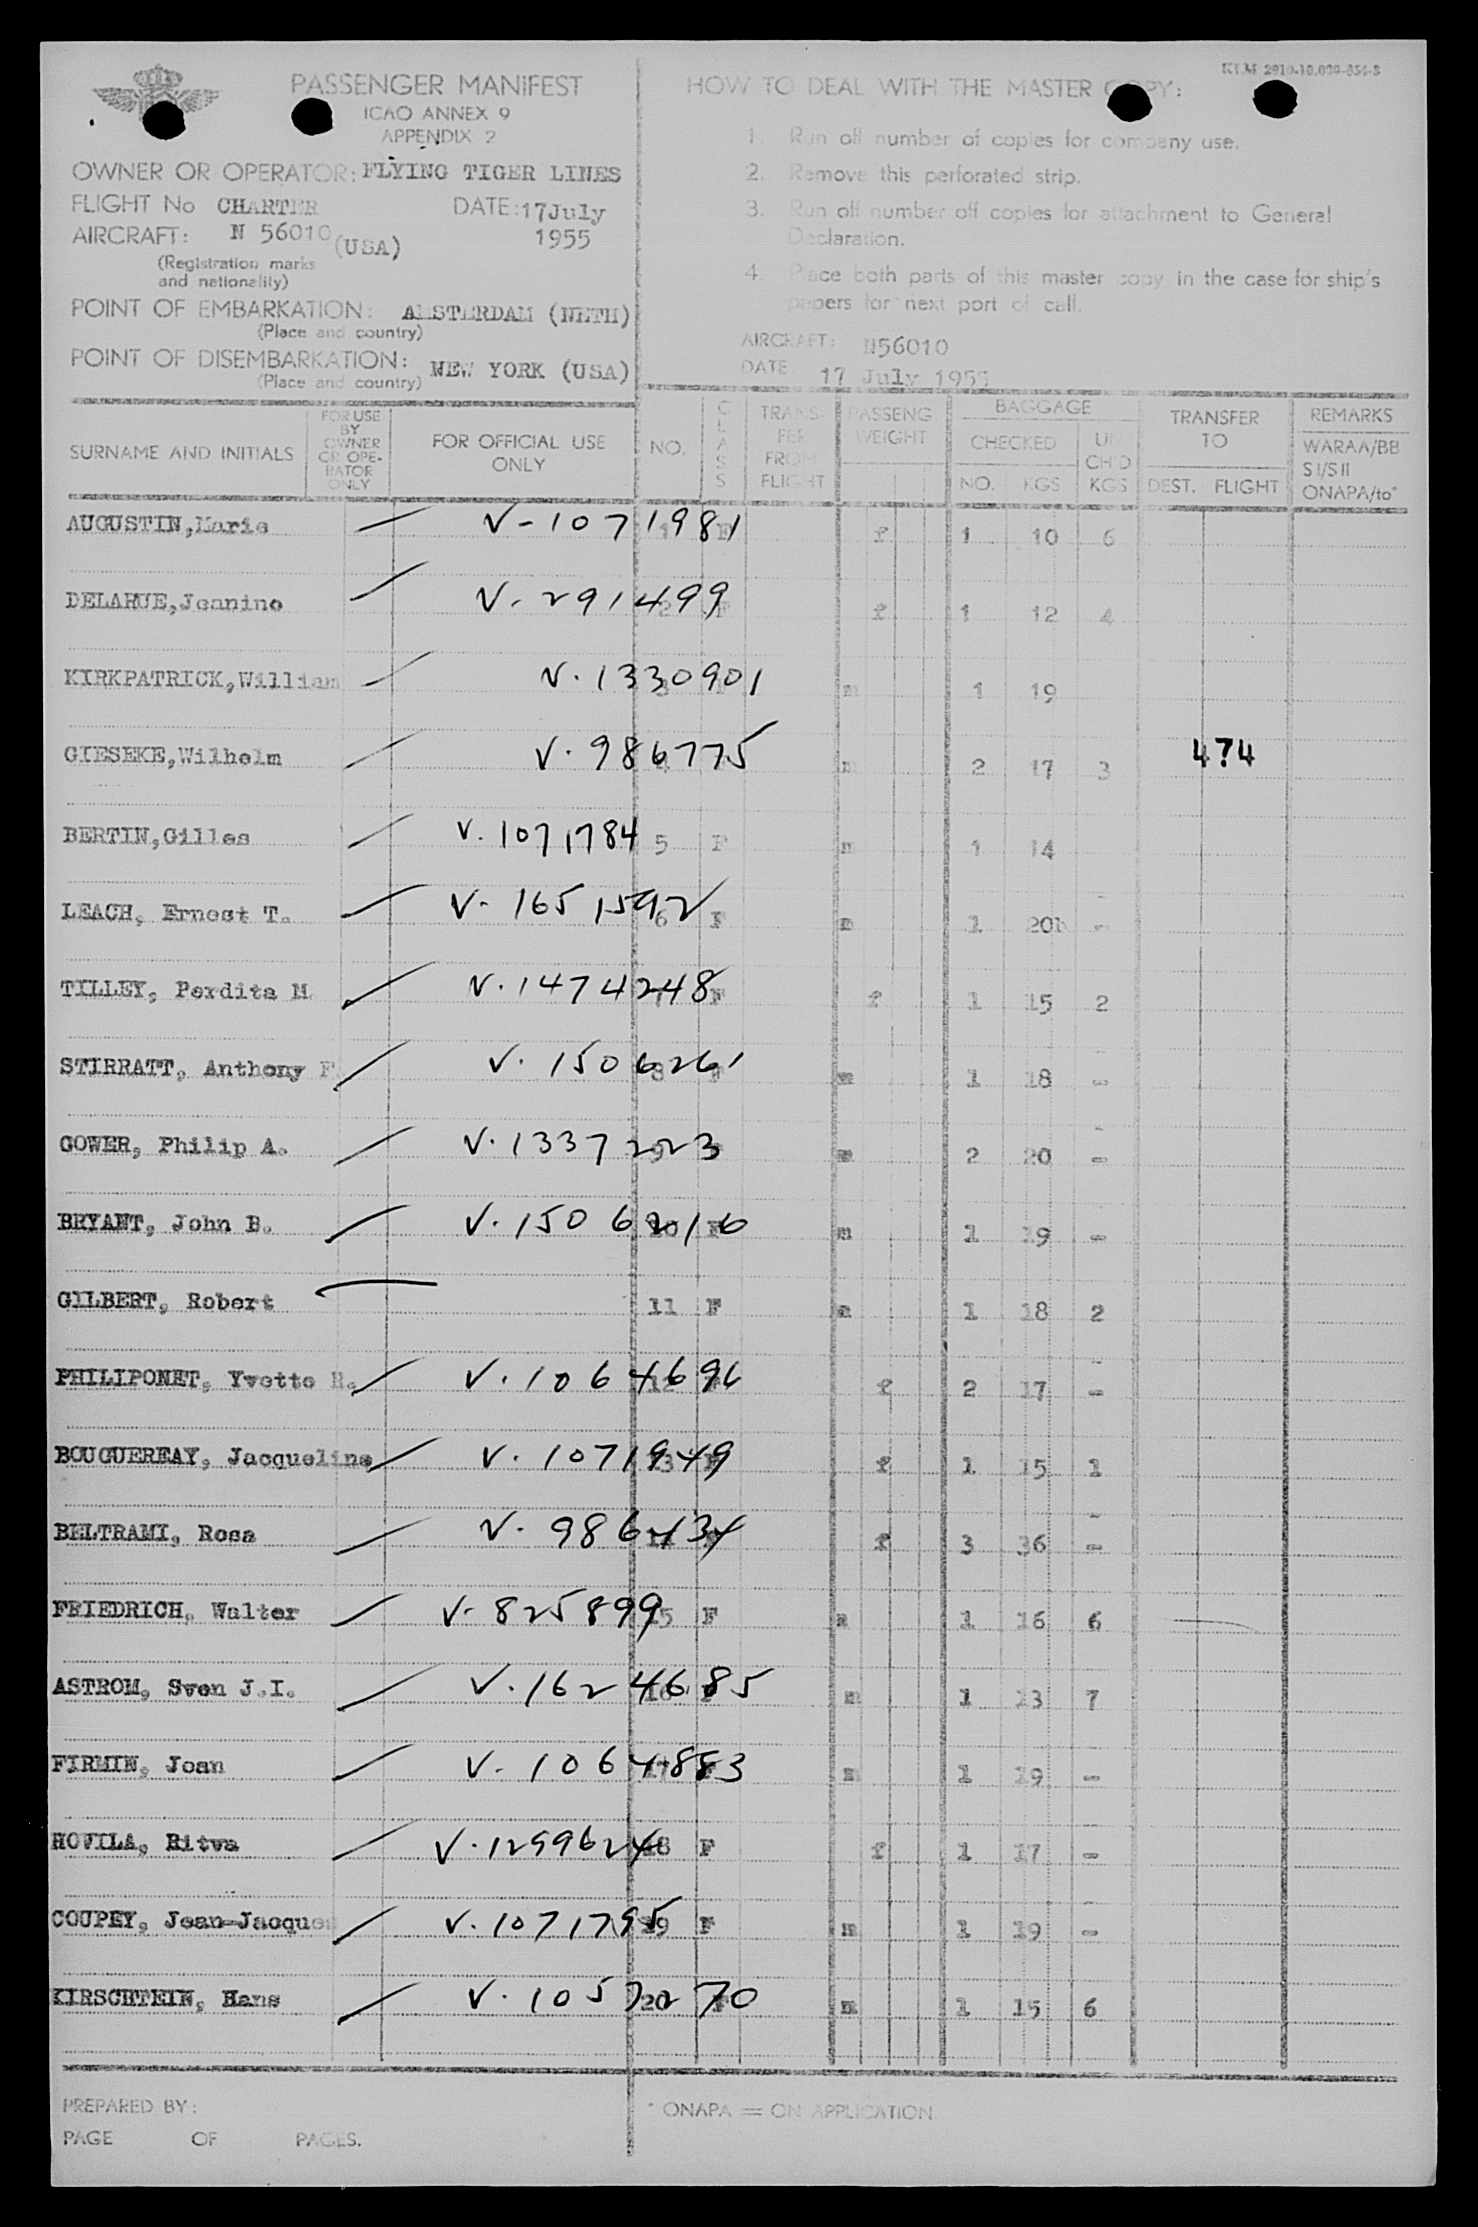 KLM 2910-10,000-854-S
PASSENGER MANIFEST
ICAO ANNEX 9
APPENDIX 2
OWNER OR OPERATOR: FLYING TIGER LINES
FLIGHT No CHARTER DATE: 17July
1955
AIRCRAFT: N 56010 (USA)
(Registration marks
and nationality)
POINT OF EMBARKATION: AMSTERDAM (NETH)
(Place and country)
POINT OF DISEMBARKATION: NEW YORK (USA)
(Place and country)
HOW TO DEAL WITH THE MASTER COPY:
1. Run off number of copies for company use.
2. Remove this perforated strip.
3. Run off number off copies for attachment to General
Declaration.
4. Place both parts of this master copy in the case for ship's
papers for next port of call.
AIRCRAFT: N56010
DATE 17 July 1955
SURNAME AND INITIALS
FOR USE
BY
OWNER
OR OPE-
RATOR
ONLY
FOR OFFICIAL USE
ONLY
NO.
CLASS
TRANS-
FER
FROM
FLIGHT
PASSENG
WEIGHT
BAGGAGE
CHECKED
NO. KGS
UN
CH'D
KGS
TRANSFER
TO
DEST. FLIGHT
REMARKS
WARAA/BB
SI/SII
ONAPA/to*
AUGUSTIN,Marie V-1071981 1 F f 1 10 6
DELAHUE,Jeanine V-291499 2 F f 1 12 4
KIRKPATRICK,William V.1330901 3 m 1 19
GIESEKE,Wilhelm V.986775 4 m 2 17 3 474
BERTIN,Gilles V.1071784 5 F m 1 14
LEACH, Ernest T. V-1651592 6 F m 1 20 -
TILLEY, Perdita M V.1474248 7 F f 1 15 2
STIRRATT, Anthony F V.1506261 8 F m 1 18 -
GOWER, Philip A. V.1337223 9 m 2 20 -
BRYANT, John B. V.1506216 10 F m 1 19 -
GILBERT, Robert 11 F m 1 18 2
PHILIPONET, Yvette H. V.1064696 12 f 2 17 -
BOUGUEREAY, Jacqueline V.1071949 13 F f 1 15 1
BELTRAMI, Rosa V.986434 14 f 3 36 -
FRIEDRICH, Walter V-825899 15 F m 1 16 6
ASTROM, Sven J.I. V.1624685 16 F m 1 13 7
FIRMIN, Joan V-1064883 17 F m 1 19 -
HOVILA, Ritva V.1299624 18 F f 1 17 -
COUPEY, Jean-Jacques V.1071795 19 F m 1 19 -
KIRSCHTEIN, Hans V.1057270 20 F m 1 15 6
PREPARED BY:
PAGE OF PAGES.
* ONAPA = ON APPLICATION